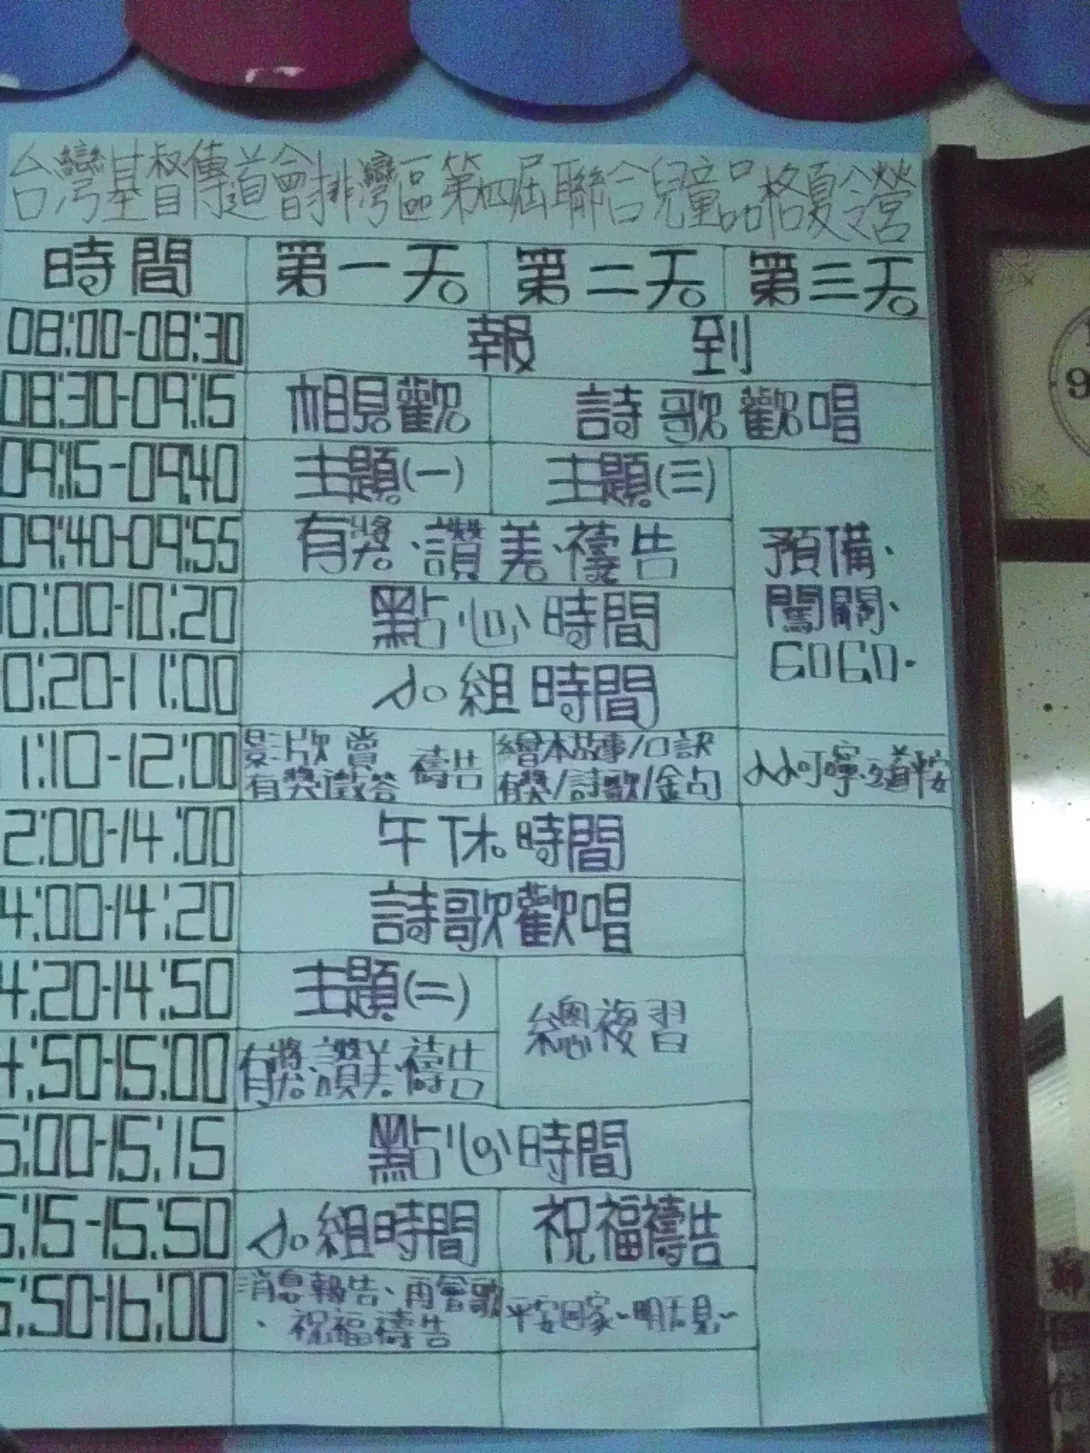 台灣基督傳道會排灣區第四屆聯合兒童品格夏令營
時間 第一天 第二天 第三天
08:00-08:30 報到
08:30-09:15 相見歡 詩歌歡唱
09:15-09:40 主題(一) 主題(三)
09:40-09:55 有獎、讚美、禱告
預備、
闖關、
GOGO.
0:00-10:20 點心時間
0:20-11:00 小組時間
1:10-12:00 影片欣賞 禱告
有獎徵答
繪本故事/口訣
有獎/詩歌/金句
小小叮嚀、道平安
2:00-14:00 午休時間
4:00-14:20 詩歌歡唱
4:20-14:50 主題(二) 總複習
4:50-15:00 有獎、讚美、禱告
5:00-15:15 點心時間
5:15-15:50 小組時間 祝福禱告
5:50-16:00 消息報告、再會歌
、祝福禱告
平安回家~明天見~
9